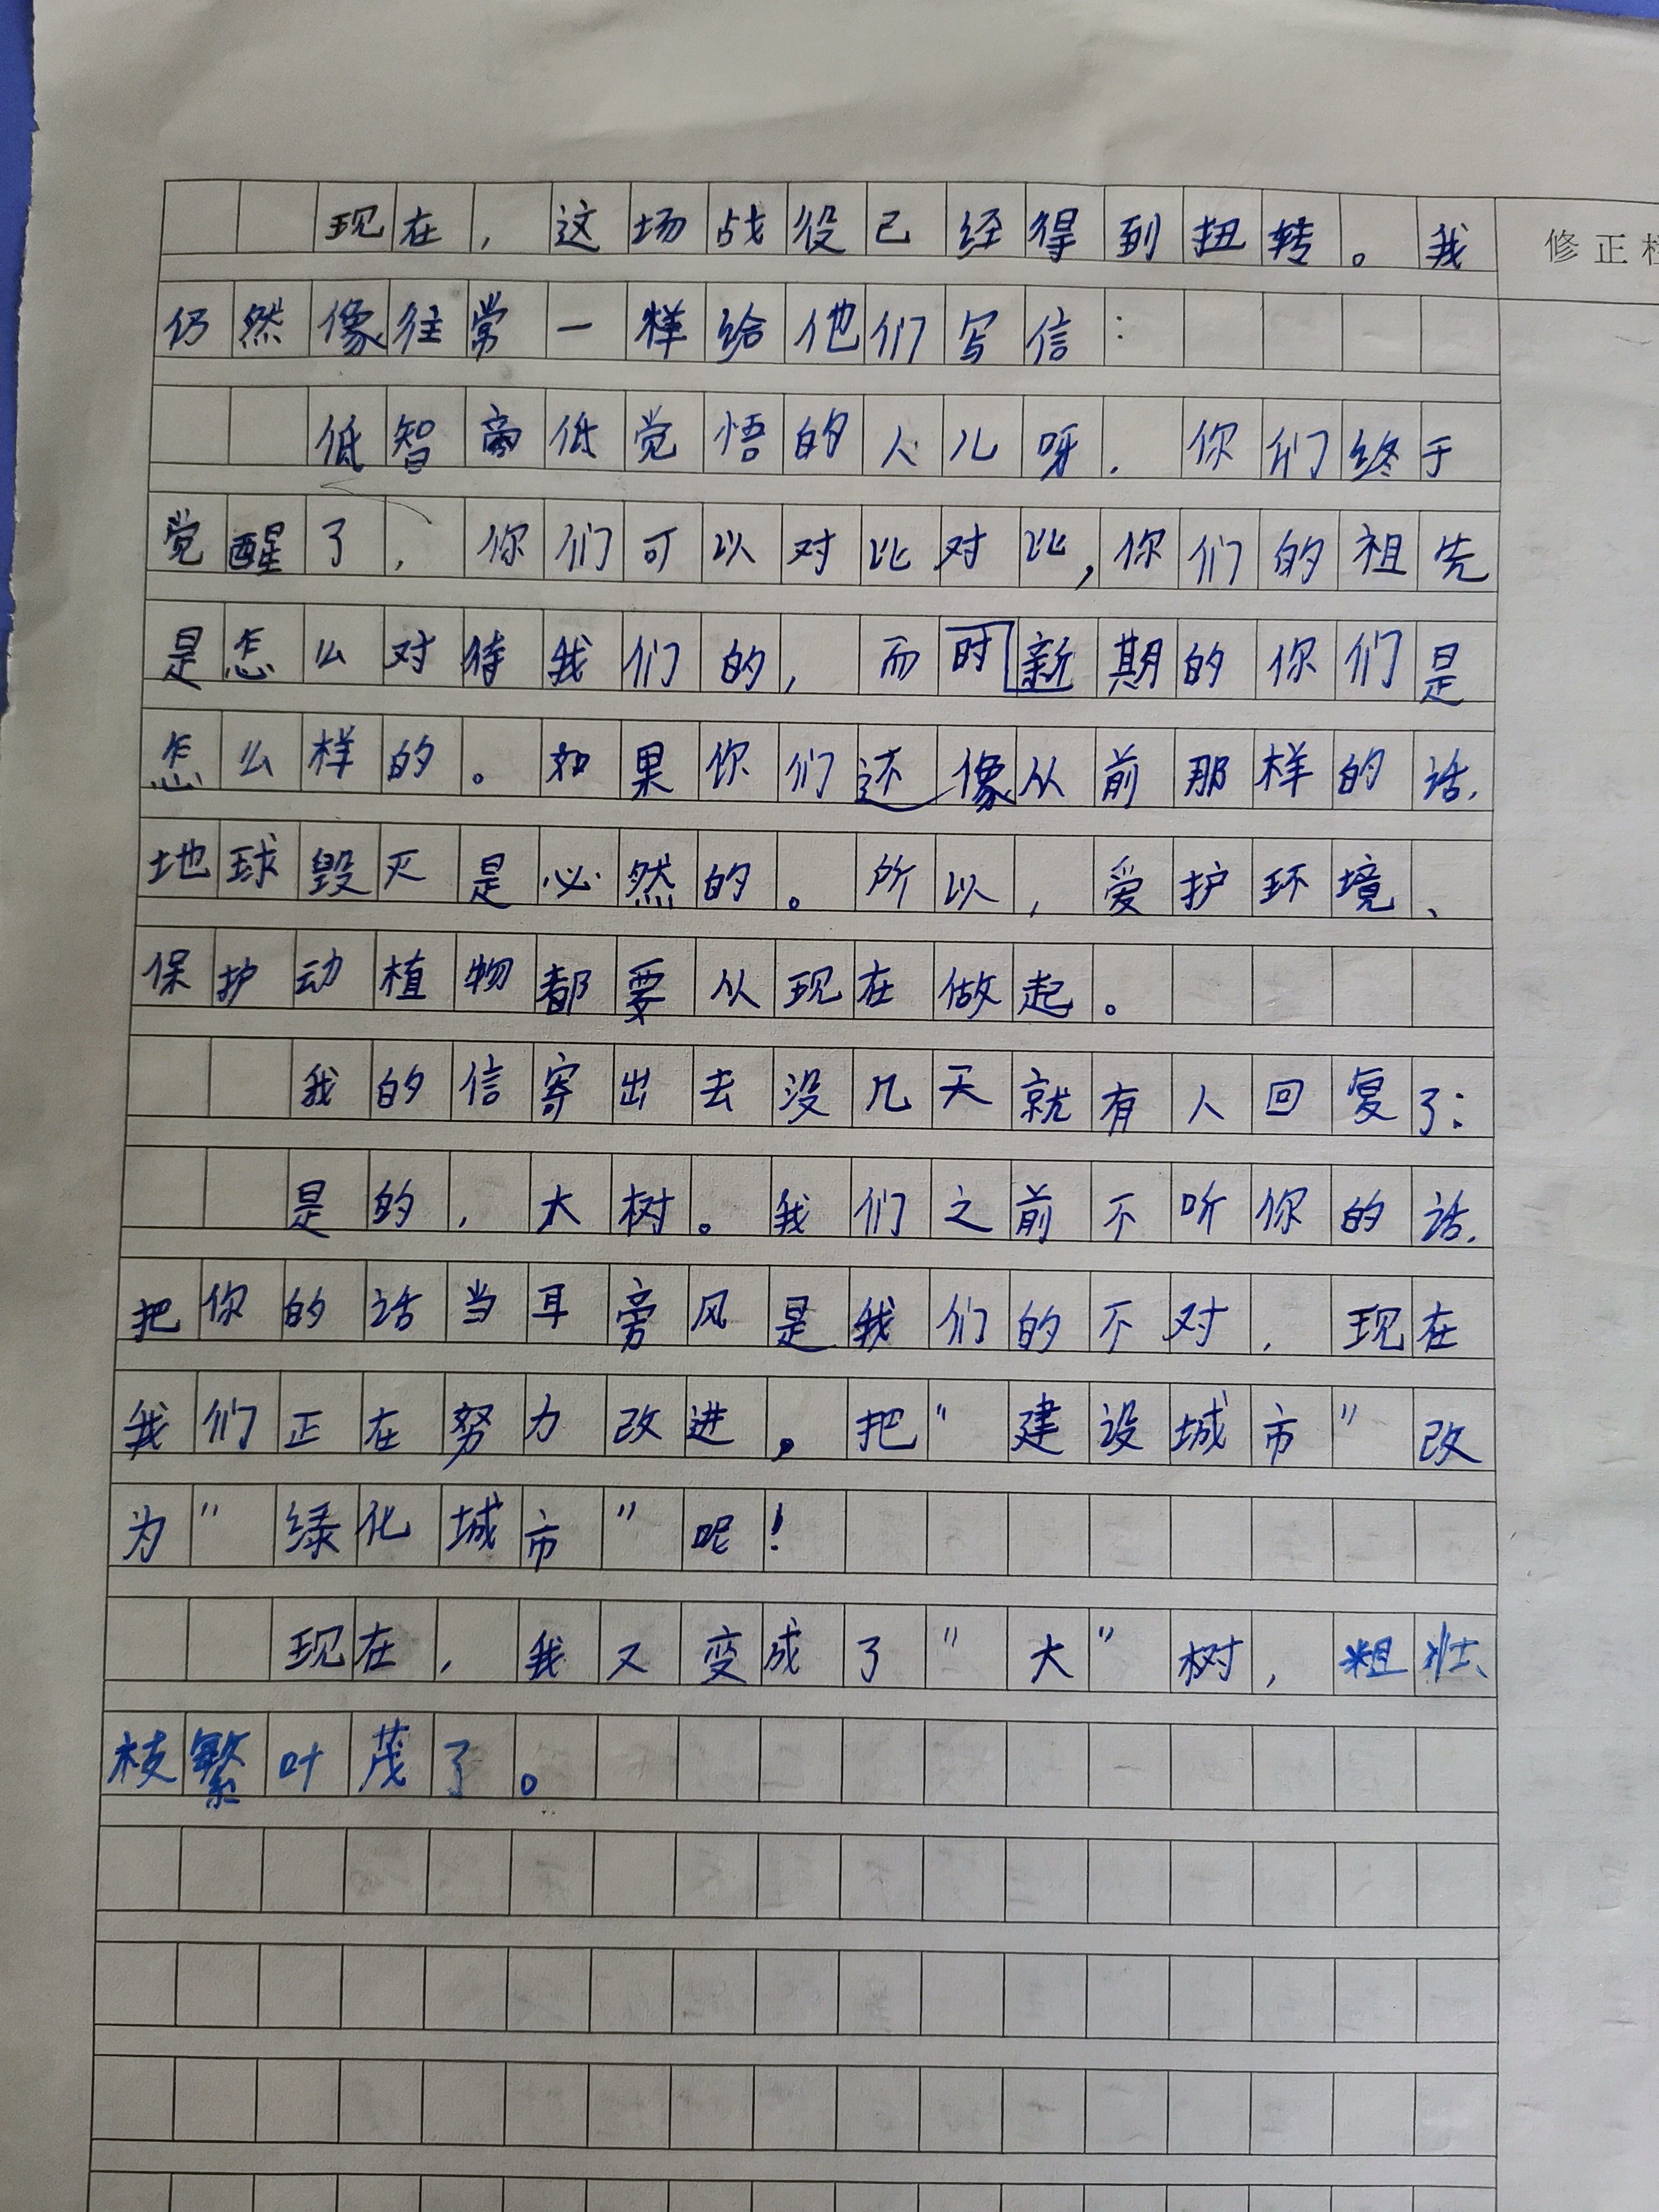 现在，这场战役已经得到扭转。我
修正
仍然像往常一样给他们写信：
低智商低觉悟的人儿呀，你们终于
觉醒了，你们可以对比对比，你们的祖先
是怎么对待我们的，而新时期的你们是
怎么样的。如果你们还像从前那样的话，
地球毁灭是必然的。所以，爱护环境、
保护动植物都要从现在做起。
我的信寄出去没几天就有人回复了：
是的，大树。我们之前不听你的话，
把你的话当耳旁风是我们的不对，现在
我们正在努力改进，把“建设城市”改
为“绿化城市”呢！
现在，我又变成了“大”树，粗壮、
枝繁叶茂了。